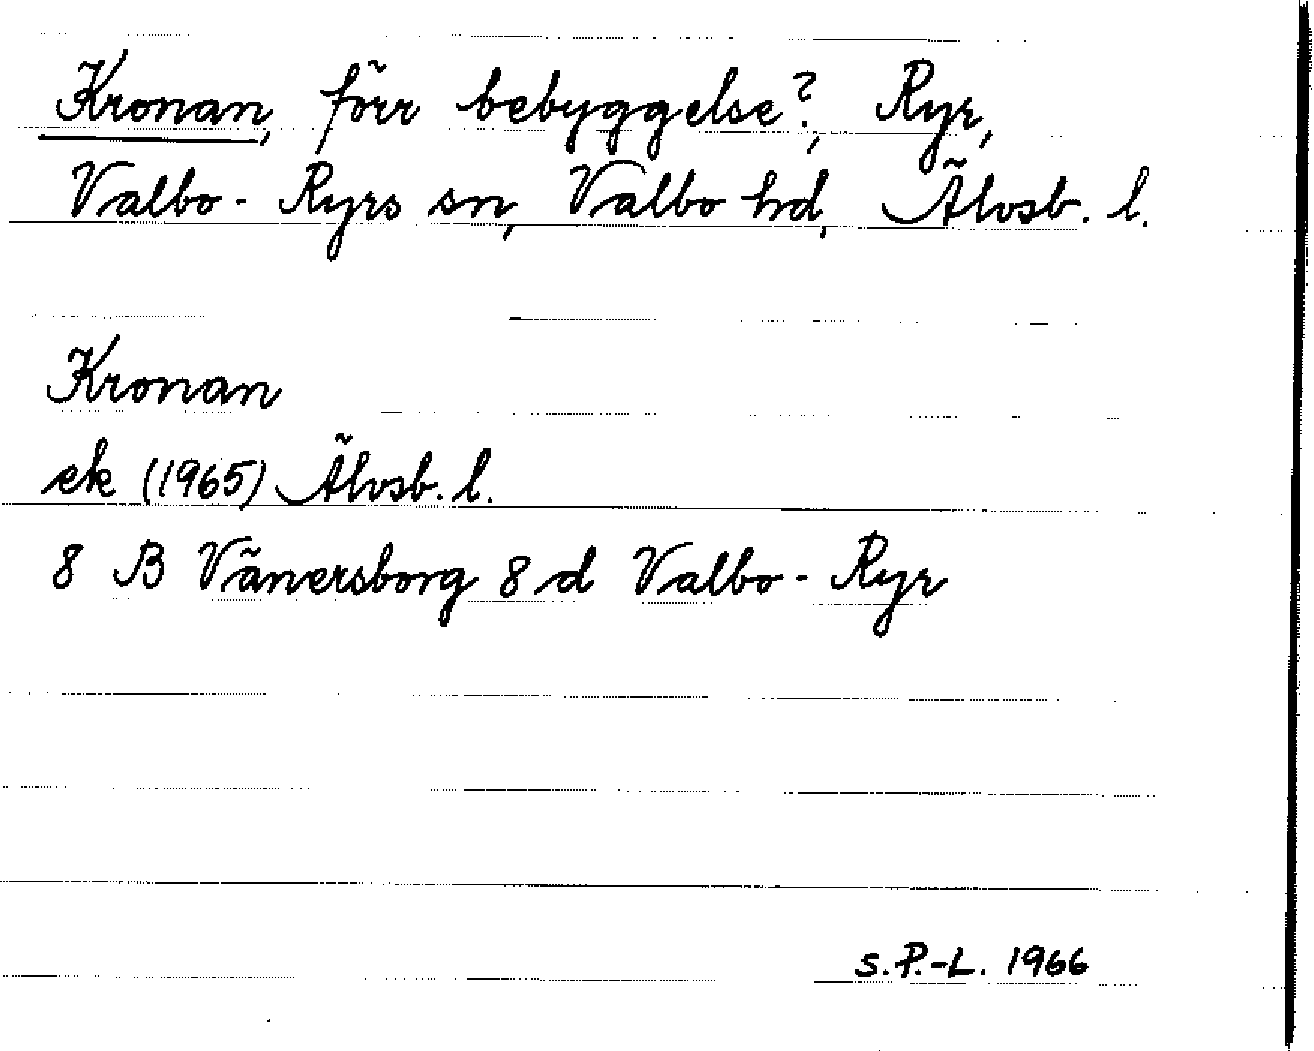 Kronan, förr bebyggelse?, Ryr,
Valbo-Ryrs sn, Valbo hd, Älvsb. l.
Kronan
ek (1965) Älvsb. l.
8 B Vänersborg 8 d Valbo-Ryr
S.P.-L. 1966